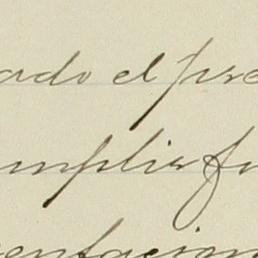 ado el pre
mplir fu
entacion